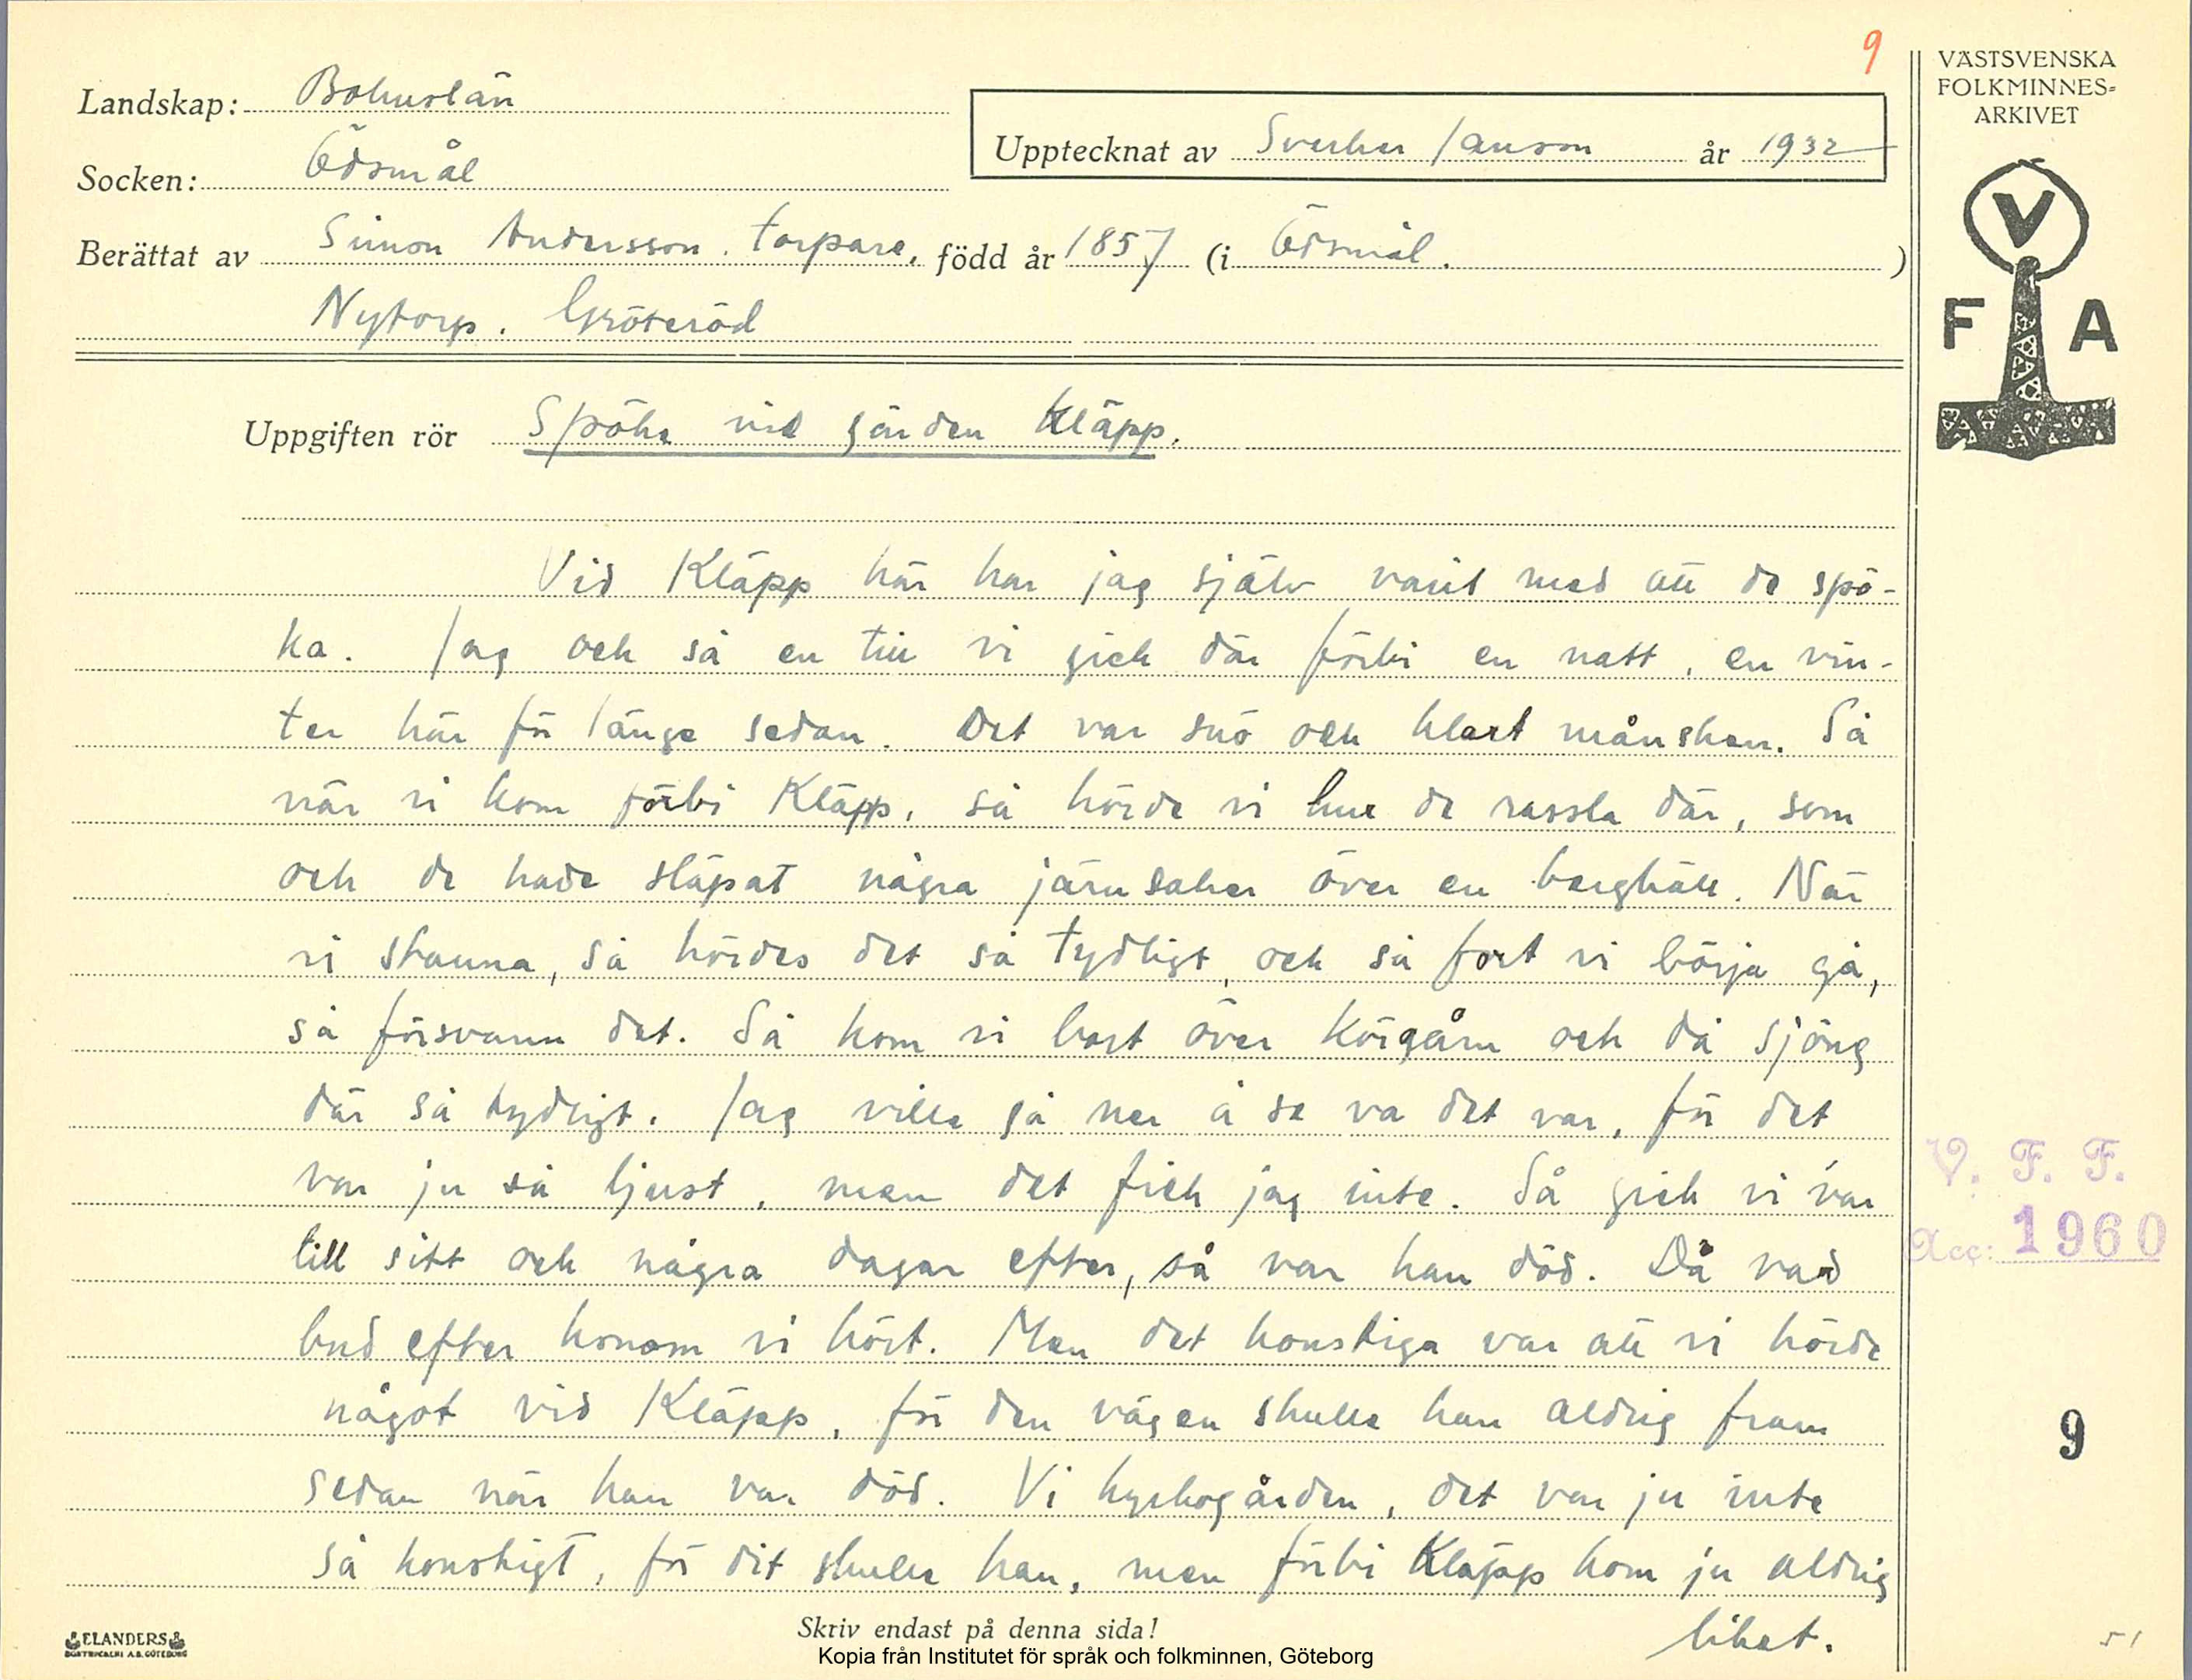 9
VÄSTSVENSKA
FOLKMINNES=
ARKIVET
Landskap: Bohuslän
Upptecknat av Sverker Janson år 1932
Socken: Ödsmål
Berättat av Simon Andersson. torpare, född år 1857 (i Ödsmål. )
Nytorp. Gröteröd
V
F A
Uppgiften rör Spöke vid gården Kläpp.
Vid Kläpp här har jag själv varit med att de spö-
ka. Jag och så en till vi gick där förbi en natt, en vin-
ter här för länge sedan. Det var snö och klart månsken. Så
när vi kom förbi Kläpp, så hörde vi hur de rassla där, som
och de hade släpat några järnsaker över en berghäll. När
vi stanna, så hördes det så tydligt, och så fort vi börja gå,
så försvann det. Så kom vi bort över körgårn och då sjöng
där så tydligt. Jag ville gå ner å se va det var, för det
var ju så ljust, men det fick jag inte. Så gick vi var
till sitt och några dagar efter, så var han död. Då va d
bud efter honom vi hört. Men det konstiga var att vi hörde
något vid Kläpp, för den vägen skulle han aldrig fram
sedan när han var död. Vi kyrkogården, det var ju inte
så konstigt, för dit skulle han, men förbi Kläpp kom ju aldrig
liket.
V. F. F.
Acc: 1960
9
ELANDERS
BOKTRYCKERI A.B. GÖTEBORG
Skriv endast på denna sida!
Kopia från Institutet för språk och folkminnen, Göteborg
51